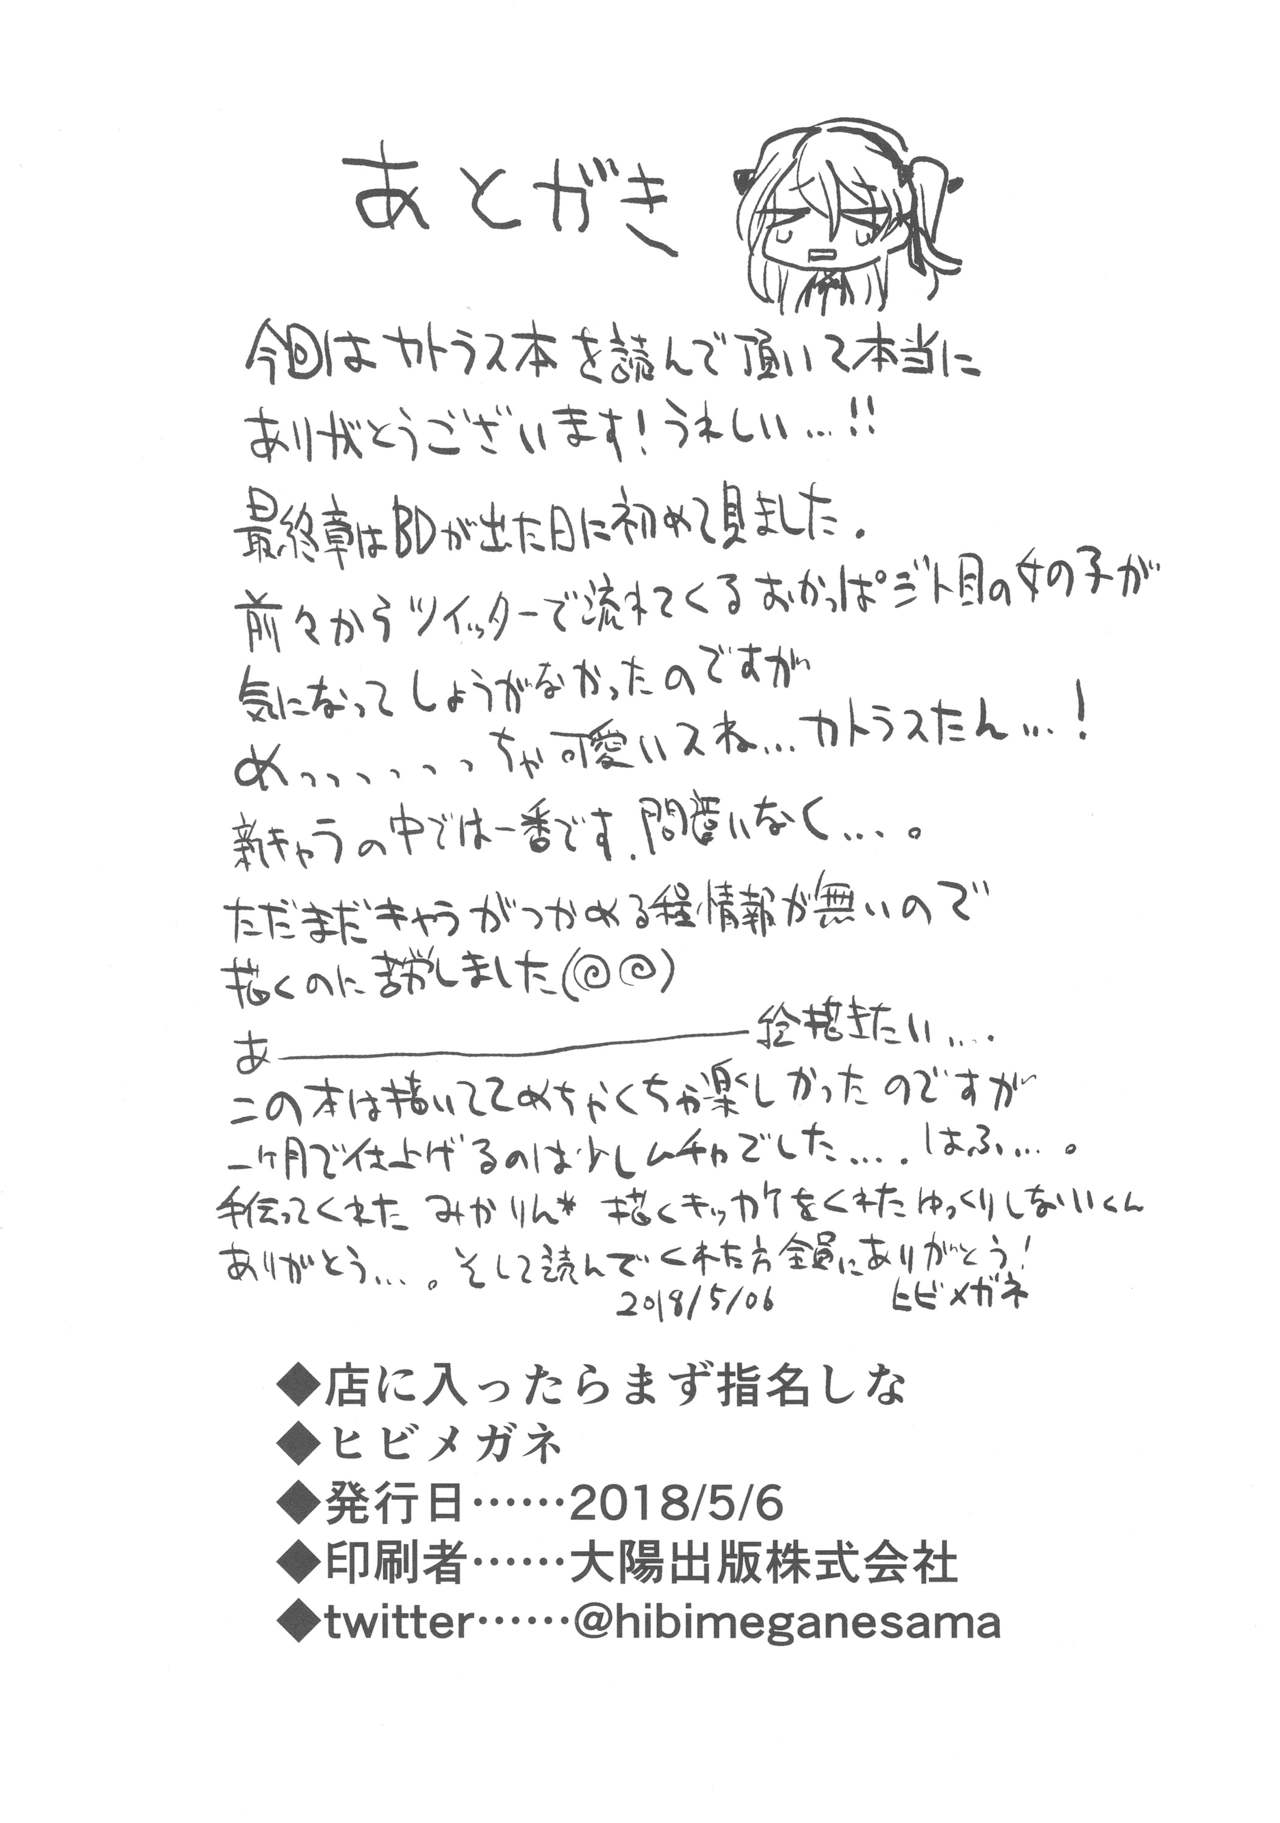 あとがき
今回はカトラス本を読んで頂いて本当に
ありがとうございます!うれしい…!!
最終章はBDが出た日に初めて見ました.
前々からツイッターで流れてくるおかっぱジト目の女の子が
気になってしょうがなかったのですが
めっっっっっっちゃ可愛いスね…カトラスたん…!
新キャラの中では一番です.間違いなく…。
ただまだキャラがつかめる程情報が無いので
描くのに苦労しました(◎◎)
あ――――――絵描きたい….
この本は描いててめちゃくちゃ楽しかったのですが
一ヶ月で仕上げるのは少しムチャでした….はふ…。
手伝ってくれたみかりん* 描くキッカケをくれたゆっくりしないいくん
ありがとう…。そして読んでくれた方全員にありがとう!
2018/5/06 ヒビメガネ
◆店に入ったらまず指名しな
◆ヒビメガネ
◆発行日……2018/5/6
◆印刷者……大陽出版株式会社
◆twitter……@hibimeganesama